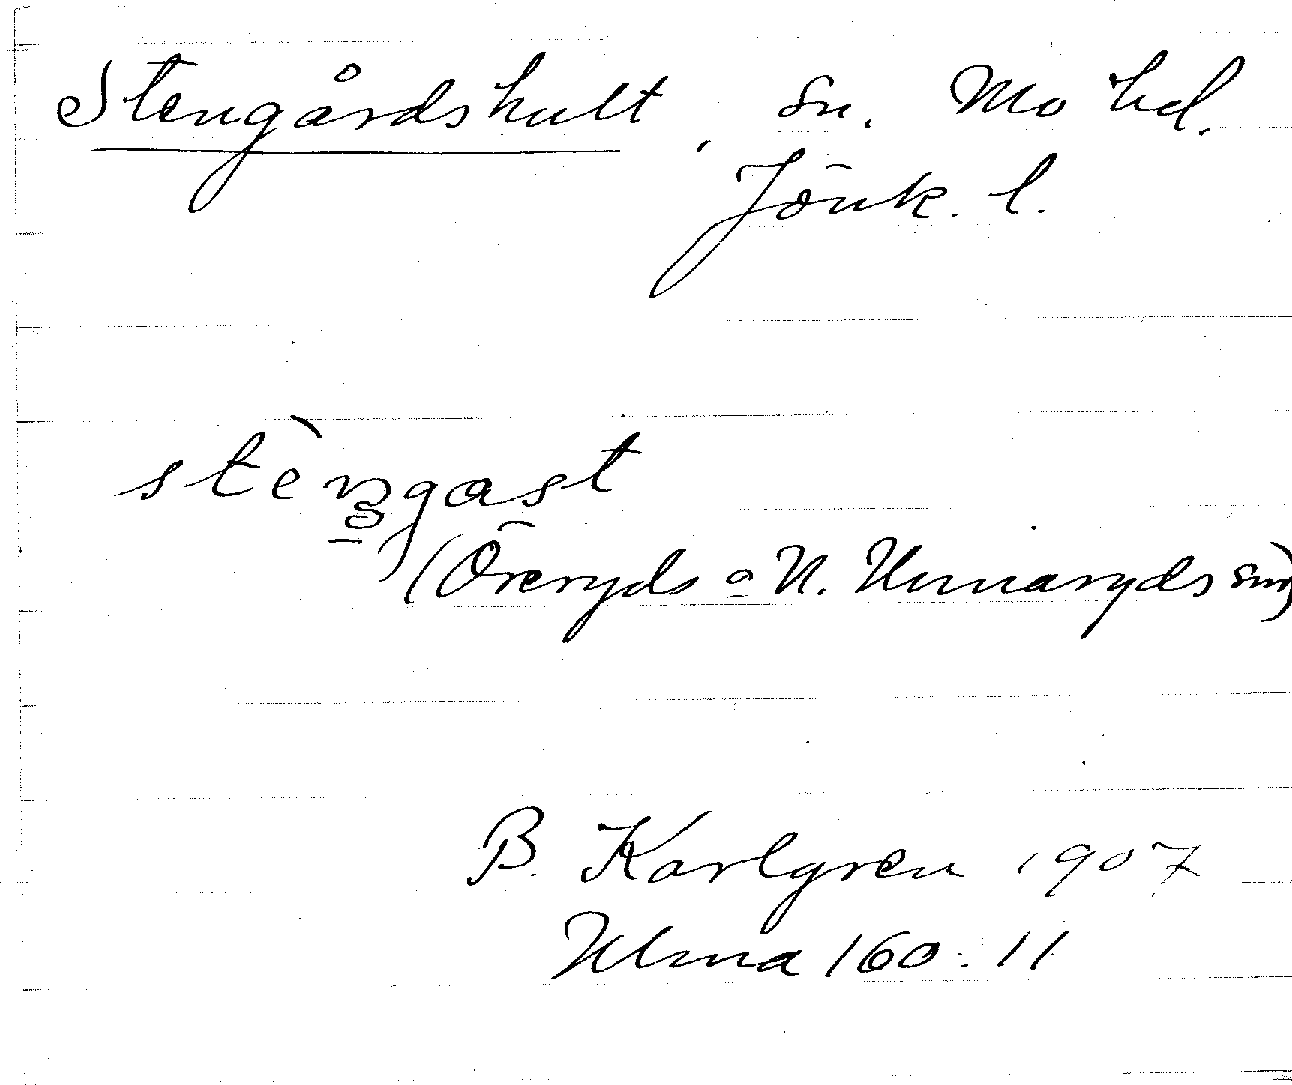 Stengårdshult, sn. Mo hd.
Jönk. l.
stèŋgast
(Öreryds o N. Unnaryds snr)
B. Karlgren 1907
Ulma 160:11